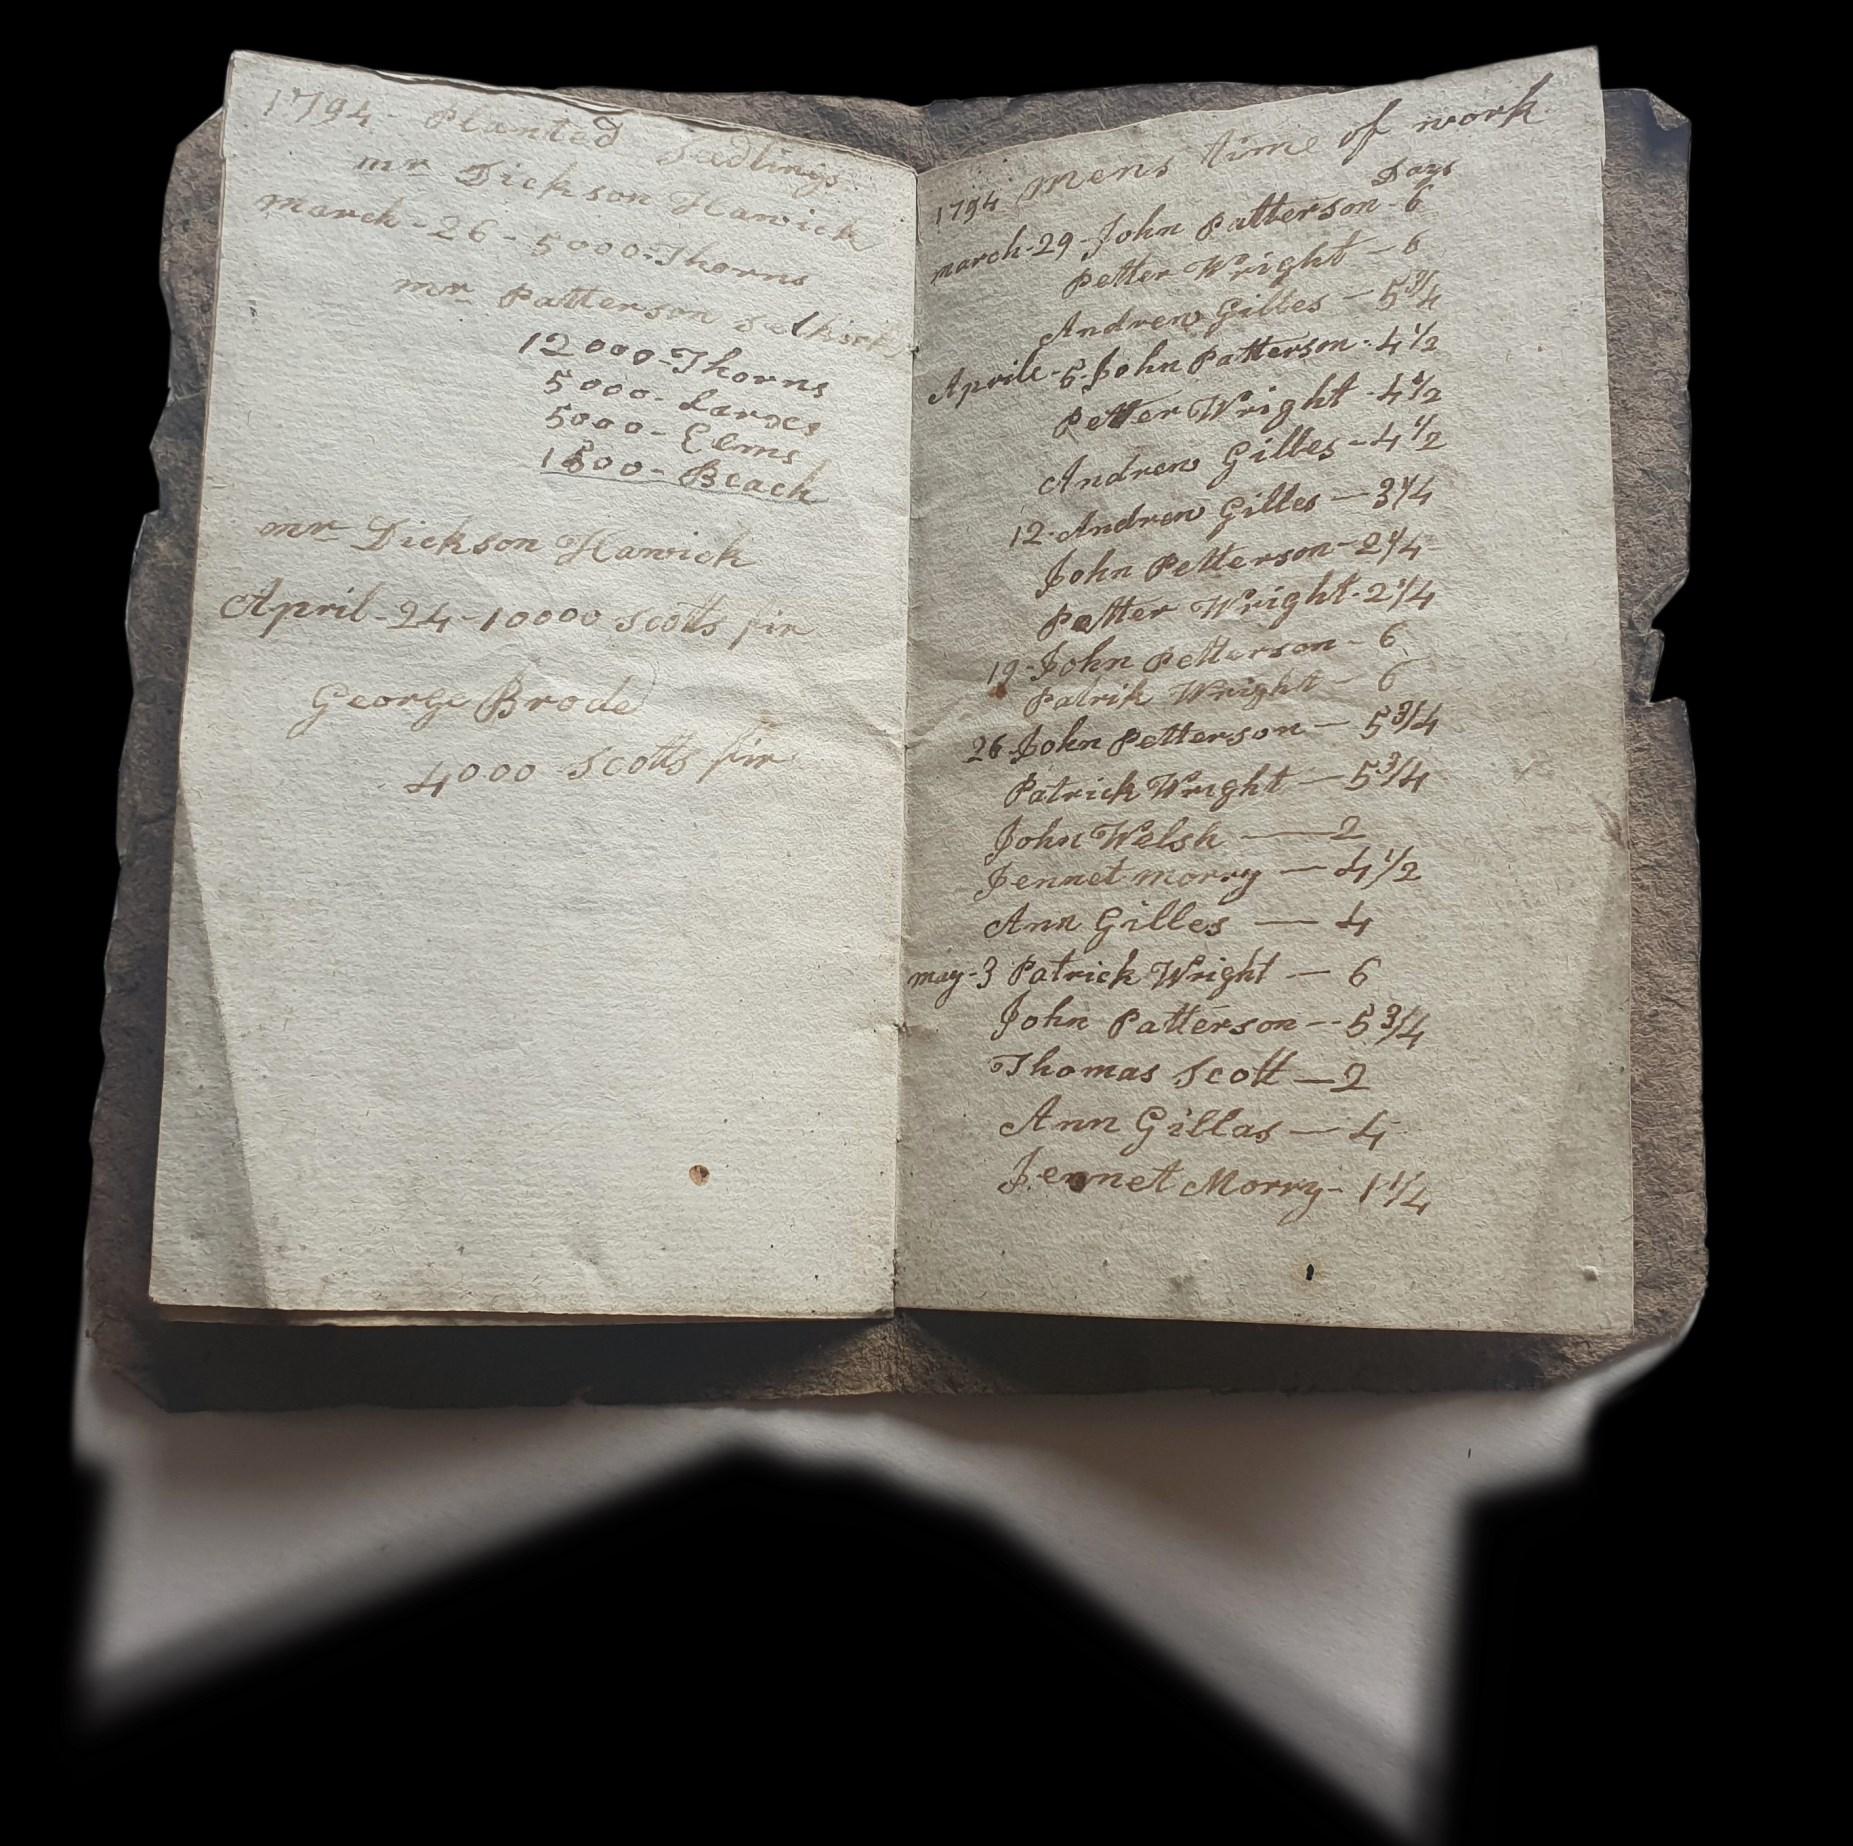 1794 - Planted Sedlings
mr Dickson Hawick
march - 26 - 5000 - Thorns
mr Patterson Selkirk
12000 - Thorns
5000 - Larges
5000 - Elms
1500 - Beach
mr Dickson Hawick
April - 24 - 10000 Scotts fir
George Brode
4000 Scotts fir
1794 mens time of work
Days
march - 29 - John Patterson - 6
Petter Wright - 6
Andrew Gilles - 5 3/4
Aprile - 5 - John Patterson - 4 1/2
Petter Wright - 4 1/2
Andrew Gilles - 4 1/2
12 - Andrew Gilles - 3 1/4
John Petterson - 2 1/4
Petter Wright - 2 1/4
19 - John Petterson - 6
Patrik Wright - 6
26 - John Petterson - 5 3/4
Patrick Wright - 5 3/4
John Welsh - 2
Jennet morry - 4 1/2
Ann Gilles - 4
may - 3 Patrick Wright - 6
John Patterson - - 5 3/4
Thomas Scott - 2
Ann Gillas - 4
Jennet Morry - 1 1/4